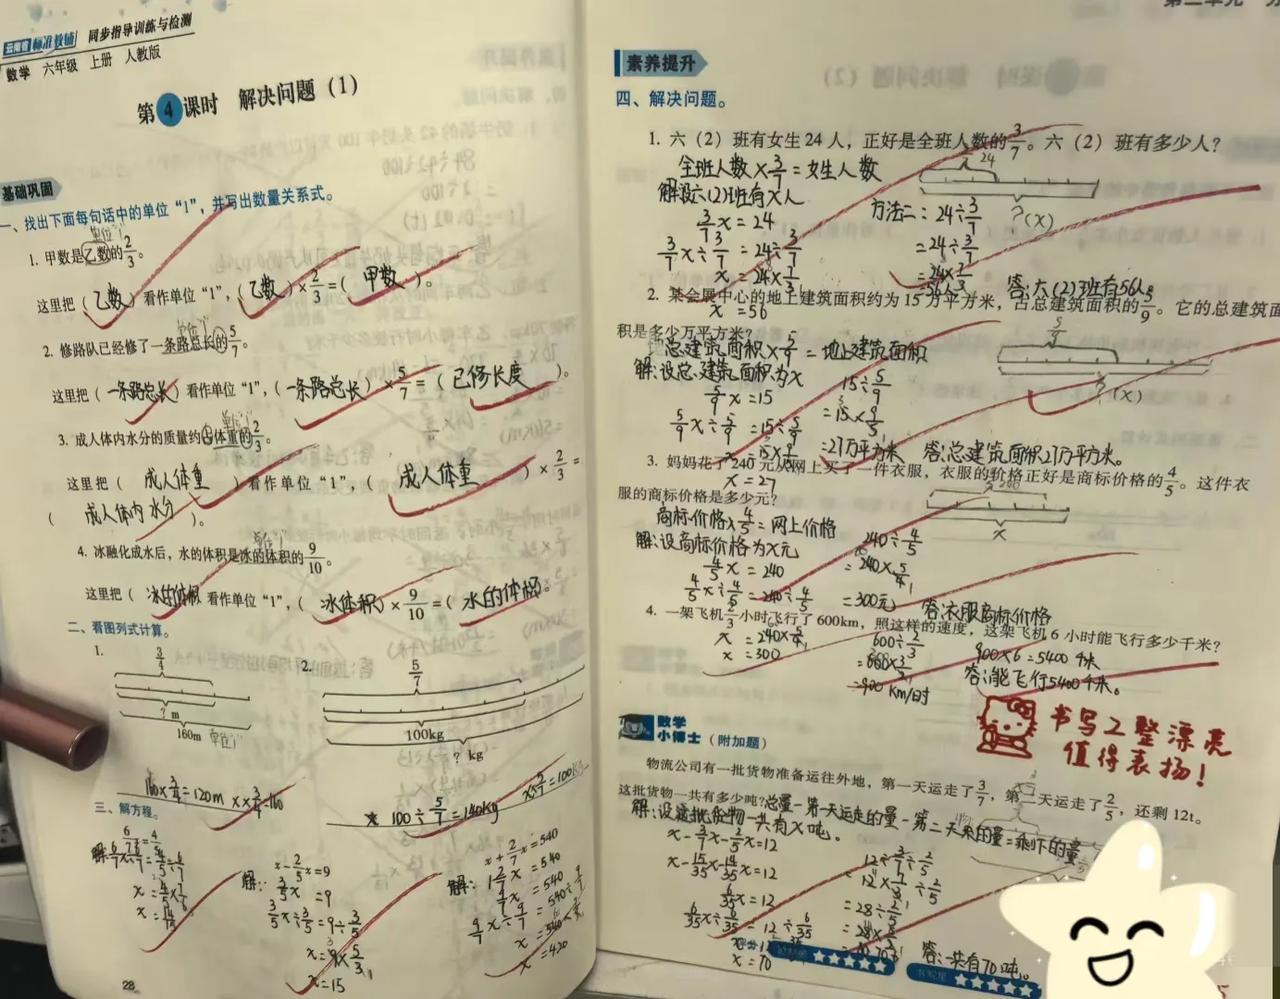 云南省标准教辅 同步指导训练与检测
数学 六年级 上册 人教版
第4课时 解决问题（1）
基础巩固
一、找出下面每句话中的单位“1”，并写出数量关系式。
单位“1”
1. 甲数是乙数的2/3。
这里把（乙数）看作单位“1”，（乙数）×2/3=（甲数）。
单位“1”
2. 修路队已经修了一条路总长的5/7。
这里把（一条路总长）看作单位“1”，（一条路总长）×5/7=（已修长度）。
单位“1”
3. 成人体内水分的质量约占体重的2/3。
这里把（成人体重）看作单位“1”，（成人体重）×2/3=
（成人体内水分）。
4. 冰融化成水后，水的体积是冰的体积的9/10。
这里把（冰的体积 看作单位“1”，（冰体积）×9/10=（水的体积。
二、看图列式计算。
1.
3/4
? m
160m 单位“1”
160×3/4=120m x×3/4=160
2.
5/7
100kg
? kg
100÷5/7=140kg
x×5/7=100
三、解方程。
6/7x=4/5
解: 6/7x÷6/7=4/5÷6/7
x=4/5×7/6
x=14/15
x-2/5x=9
解: 3/5x=9
3/5x÷3/5=9÷3/5
x=9×5/3
x=15
x+2/7x=540
解: 1 2/7x=540
9/7x=540
x=420
28
素养提升
四、解决问题。
1. 六（2）班有女生24人，正好是全班人数的3/7。六（2）班有多少人？
全班人数×3/7=女生人数
24
?(x)
解设六(2)班有x人
3/7x=24
3/7x÷3/7=24÷3/7
x=24×7/3
x=56
方法二: 24÷3/7
=24÷3/7
=24×7/3
=56人
答:六(2)班有56人
2. 某会展中心的地上建筑面积约为15万平方米，占总建筑面积的5/9。它的总建筑面
积是多少万平方米？
总建筑面积×5/9=地上建筑面积
解:设总建筑面积为x
5/9x=15
5/9x÷5/9=15÷5/9
x=15×9/5
x=27
15÷5/9
=15×9/5
=27万平方米
答:总建筑面积27万平方米。
(x)
3. 妈妈花了240元从网上买了一件衣服，衣服的价格正好是商标价格的4/5。这件衣
服的商标价格是多少元？
商标价格×4/5=网上价格
解:设商标价格为x元
4/5x=240
4/5x÷4/5=240÷4/5
x=240×5/4
x=300
240÷4/5
=240×5/4
=300元
x
答:衣服商标价格
4. 一架飞机2/3小时飞行了600km，照这样的速度，这架飞机6小时能飞行多少千米？
600÷2/3
=600×3/2
=900 km/时
900×6=5400千米
答:能飞行5400千米。
书写工整漂亮
值得表扬！
数学
小博士（附加题）
物流公司有一批货物准备运往外地，第一天运走了3/7，第二天运走了2/5，还剩12t。
这批货物一共有多少吨？
总量-第一天运走的量-第二天运的量=剩下的量
解:设这批货物一共有x吨。
x-3/7x-2/5x=12
x-15/35x-14/35x=12
6/35x=12
6/35x÷6/35=12÷6/35
x=70
答:共有70吨。